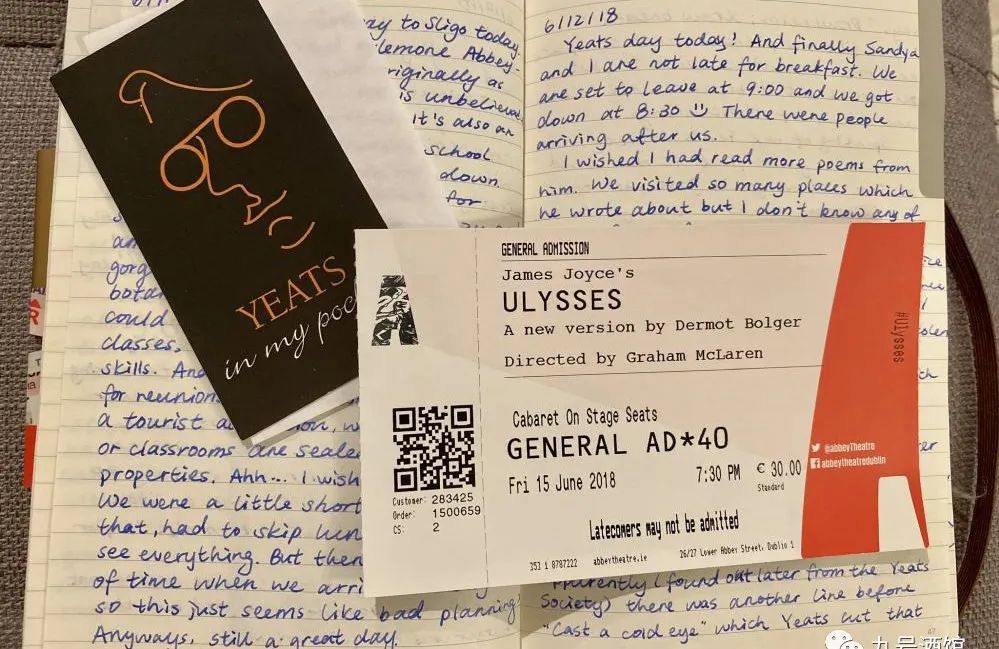 ay to Sligo today.
lemone Abbey-
riginally as
is unbelieva
It's also an
school
down.
for
am
gorg
botan
could
classes,
skills. And
for reunion
a tourist a on, w
or classrooms are seale
properties. Ahh... I wish
We were a little short
that, had to skip lun
see everything. But then
of time when we arri
so this just seems like bad planning
Anyways, still a great day.
YEATS
in my poc
6/12/18
Yeats day today! And finally Sandya
and I are not late for breakfast. We
are set to leave at 9:00 and we got
down at 8:30 There were people
arriving after us.
I wished I had read more poems from
him. We visited so many places which
he wrote about but I don't know any of
GENERAL ADMISSION
James Joyce's
ULYSSES
A new version by Dermot Bolger
Directed by Graham McLaren
Cabaret On Stage Seats
GENERAL AD*40
Fri 15 June 2018 7:30 PM € 30.00
Standard
Latecomers may not be admitted
353 1 8787222 abbeytheatre.ie 26/27 Lower Abbey Street, Dublin 1
Customer: 283425
Order: 1500659
CS: 2
#Ulysses
@abbeytheatre
abbeytheatredublin
I found out later from the Yeats
Society) there was another line before
"Cast a cold eye" which Yeats cut that
九号酒馆